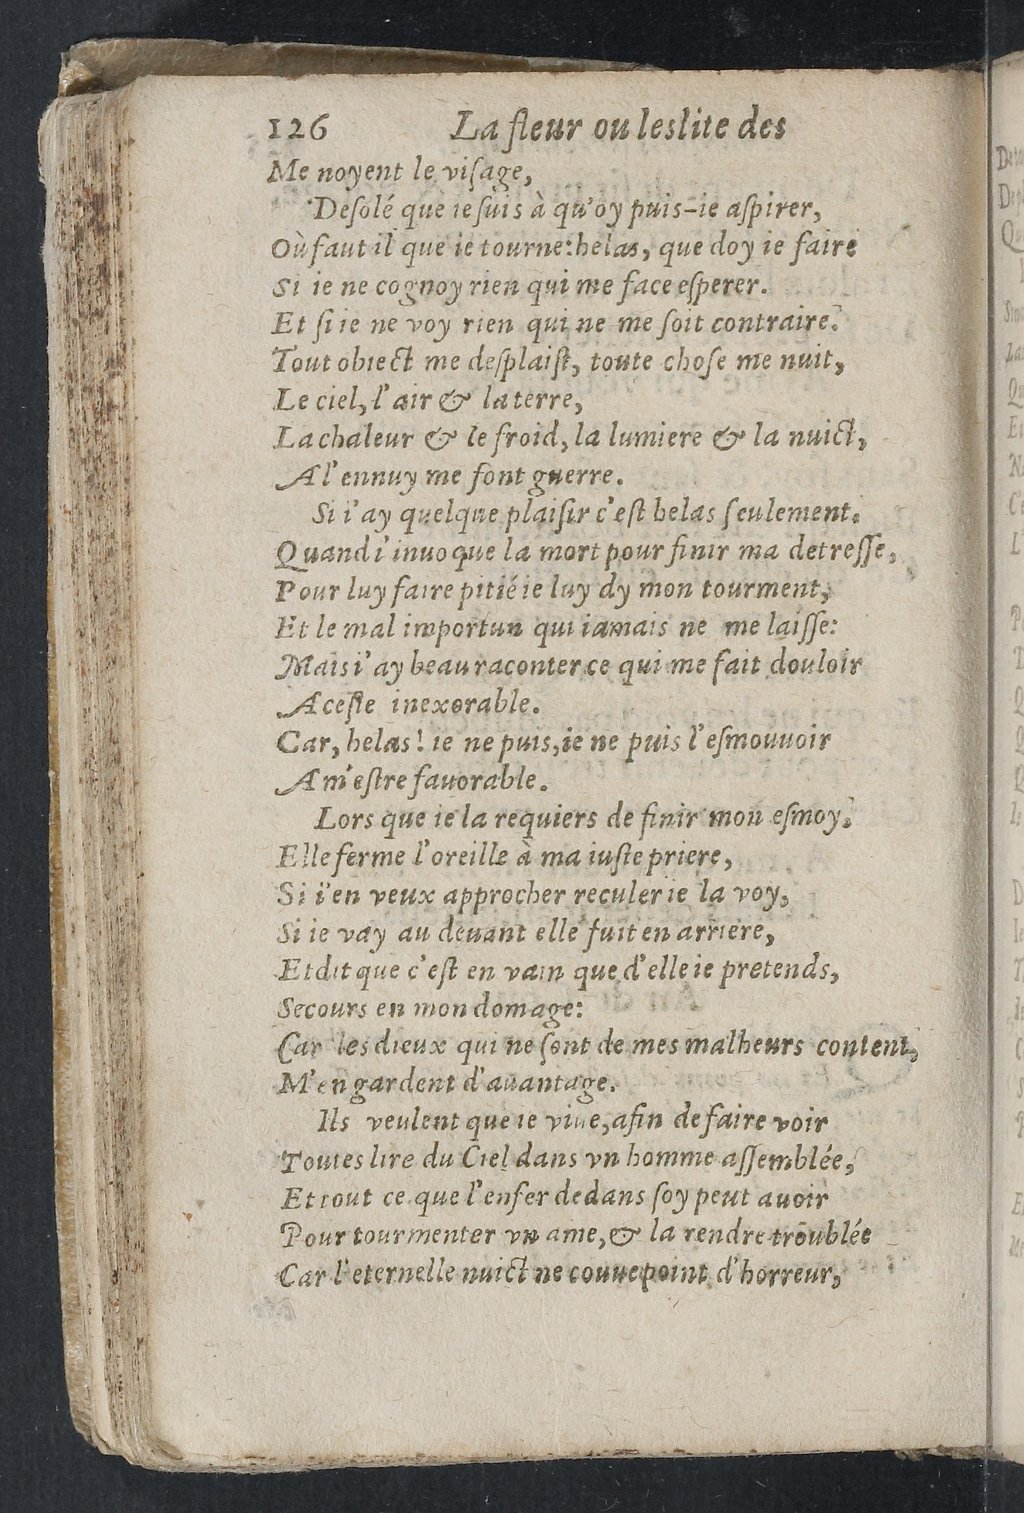 126 La fleur ou leslite des
Me noyent le viſage,
Deſolé que ie ſuis à qu'oy puis-ie aſpirer,
Où faut il que ie tourne: helas, que doy ie faire
Si ie ne cognoy rien qui me face eſperer.
Et ſi ie ne voy rien qui ne me ſoit contraire?
Tout obiect me deſplaiſt, toute choſe me nuit,
Le ciel, l'air & la terre,
La chaleur & le froid, la lumiere & la nuict,
A l'ennuy me font guerre.
Si i'ay quelque plaiſir c'eſt helas ſeulement.
Quand i'inuoque la mort pour finir ma detreſſe,
Pour luy faire pitié ie luy dy mon tourment,
Et le mal importun qui iamais ne me laiſſe:
Mais i'ay beau raconter ce qui me fait douloir
A ceſte inexorable.
Car, helas! ie ne puis, ie ne puis l'eſmouuoir
A m'eſtre fauorable.
Lors que ie la requiers de finir mon eſmoy.
Elle ferme l'oreille à ma iuſte priere,
Si i'en veux approcher reculer ie la voy,
Si ie vay au deuant elle fuit en arriere,
Et dit que c'eſt en vain que d'elle ie pretends,
Secours en mon domage:
Car les dieux qui ne ſont de mes malheurs content,
M'en gardent d'auantage.
Ils veulent que ie viue, afin de faire voir
Toutes lire du Ciel dans vn homme aſſemblée,
Et tout ce que l'enfer dedans ſoy peut auoir
Pour tourmenter vn ame, & la rendre troublée
Car l'eternelle nuict ne couue point d'horreur,